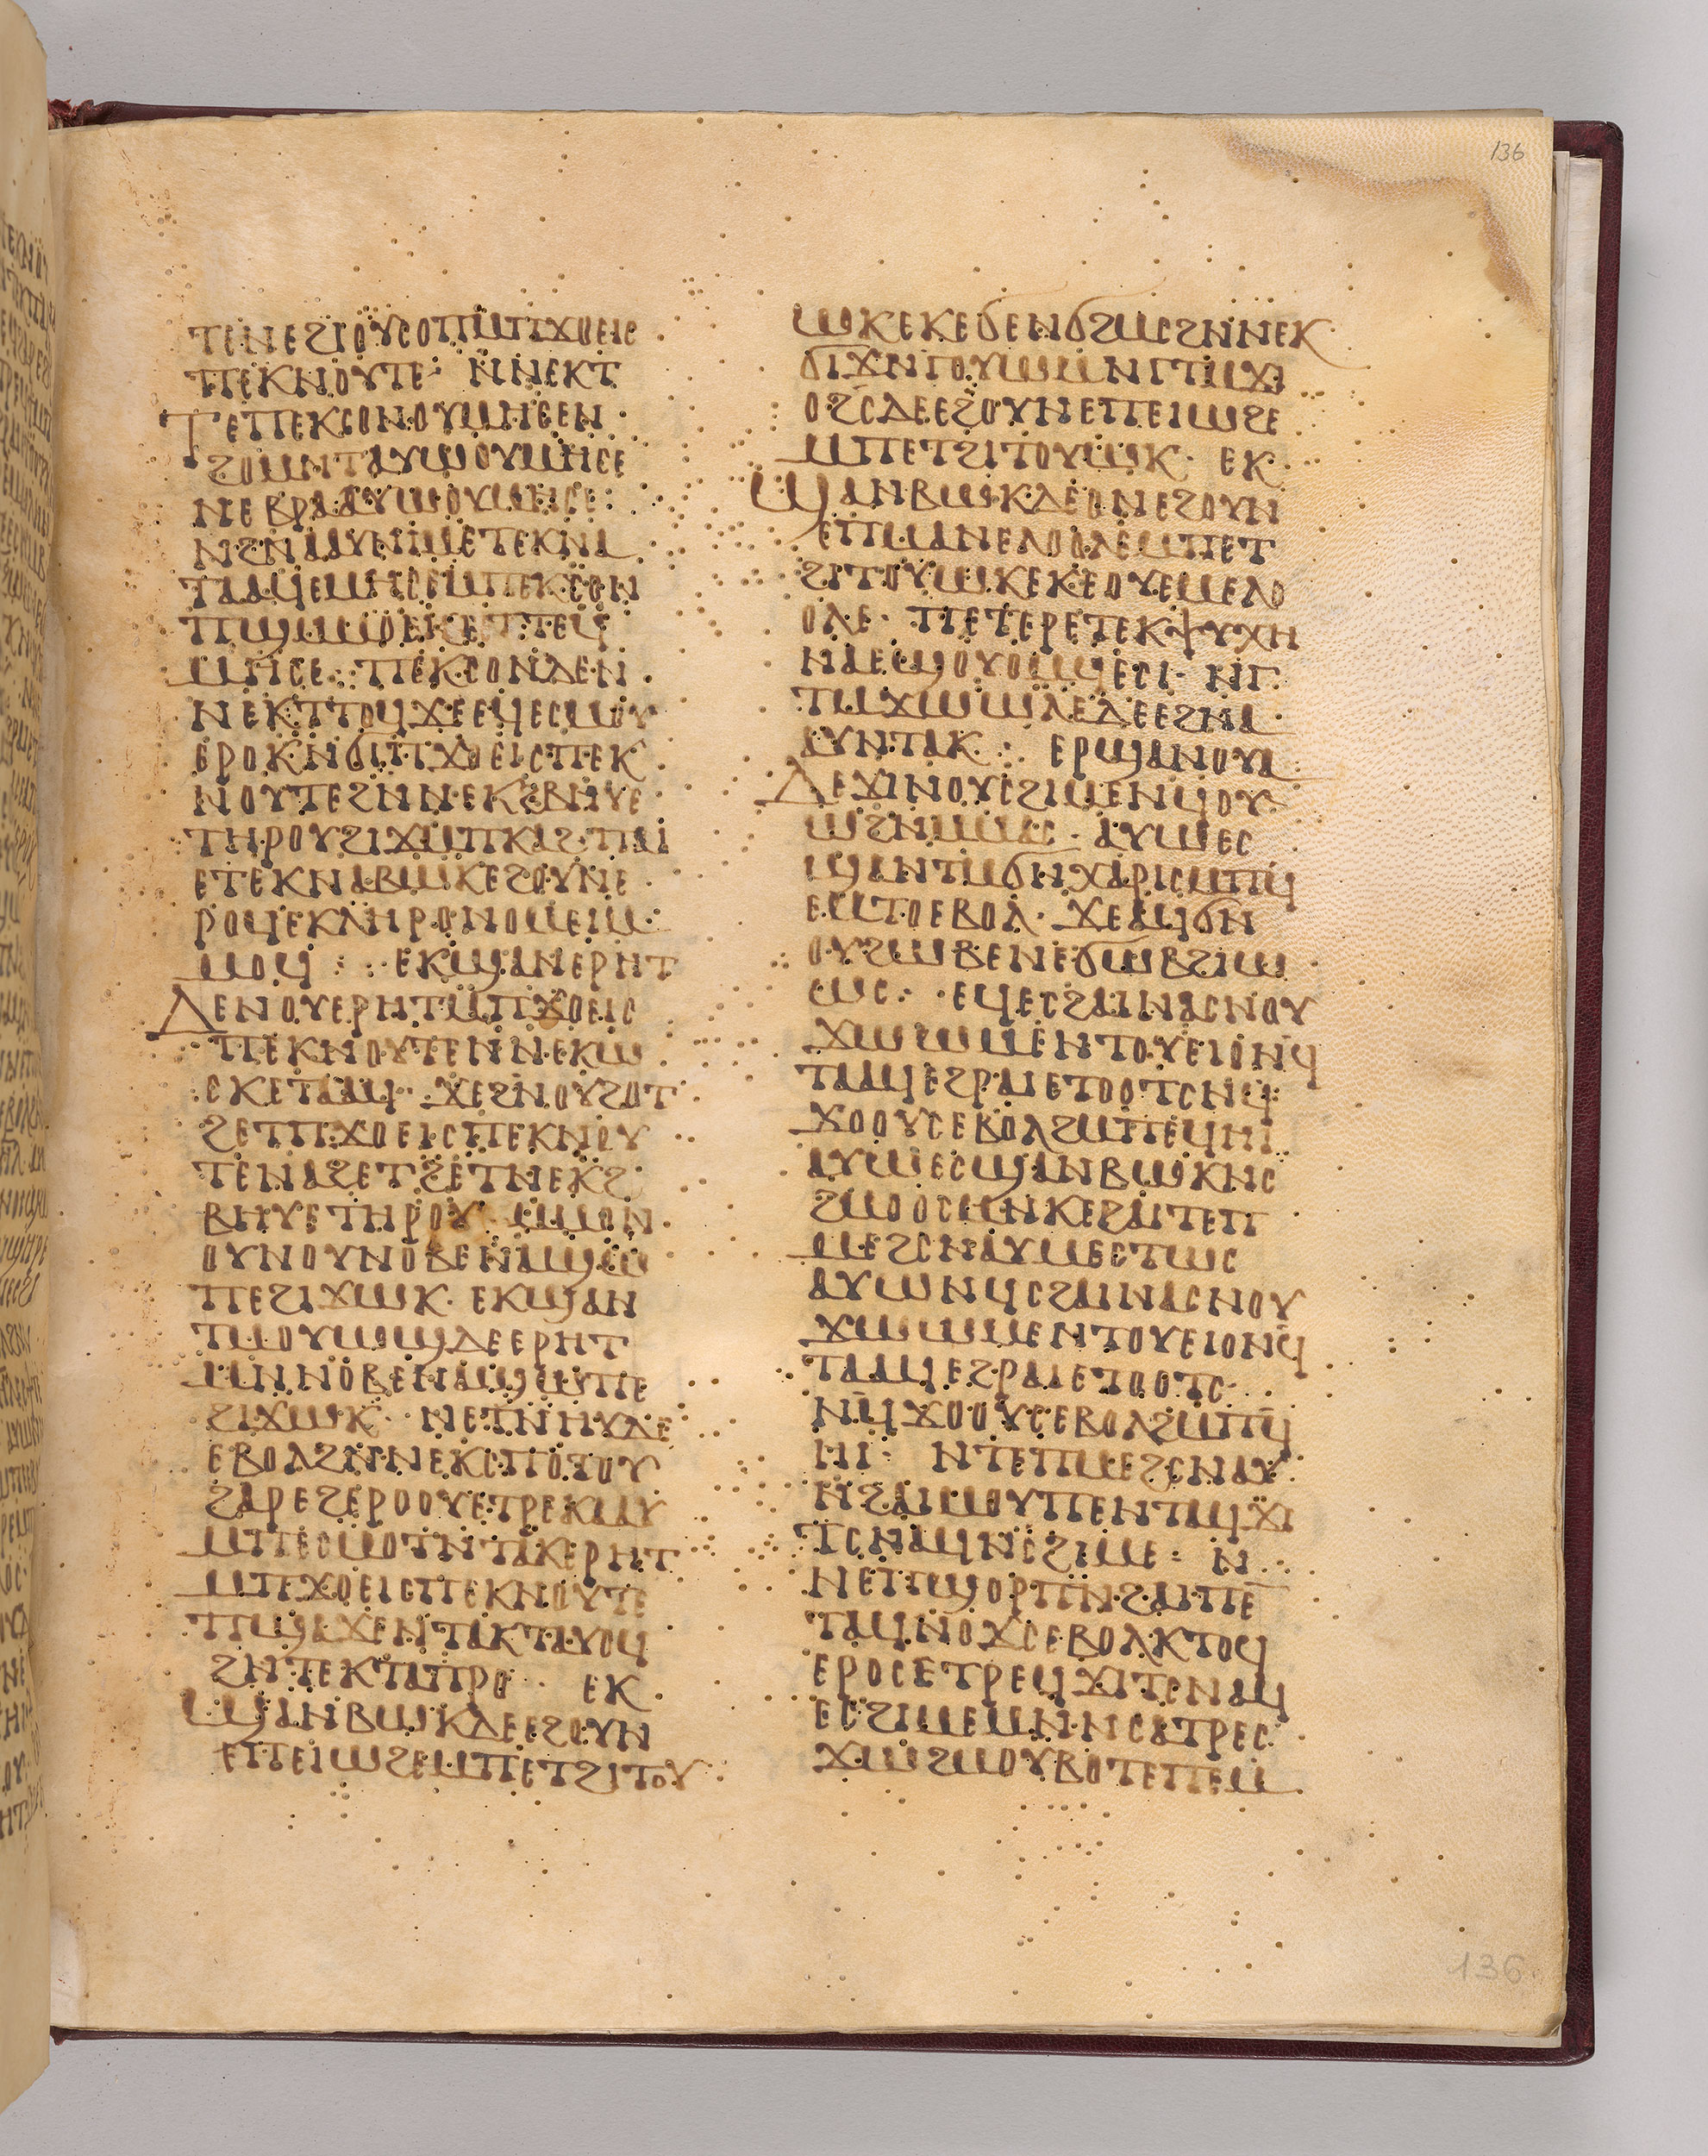 ⲧⲉⲛⲉϩⲓⲟⲩⲥⲟⲡⲙⲡϫⲟⲉⲓⲥ
ⲡⲉⲕⲛⲟⲩⲧⲉ· ⲛⲛⲉⲕⲧ
ⲧⲉⲡⲉⲕⲥⲟⲛⲟⲩⲙⲏⲥⲉⲛ
ϩⲟⲙⲛⲧⲁⲩⲱⲟⲩⲙⲏⲥⲉ
ⲛⲉⲃⲣⲁⲁⲩⲱⲟⲩⲙⲏⲥⲉ
ⲛϩⲛⲁⲁⲩⲛⲓⲙⲉⲧⲉⲕⲛⲁ
ⲧⲁⲁϥⲉⲙⲏⲥⲉⲙⲡⲉⲕⲥⲟⲛ
ⲡϣⲙⲙⲟⲉⲕⲉⲧⲧⲉϥ
ⲙⲏⲥⲉ: ⲡⲉⲕⲥⲟⲛⲇⲉⲛ
ⲛⲉⲕⲧⲧⲟϥϫⲉⲉϥⲉⲥⲙⲟⲩ
ⲉⲣⲟⲕⲛϭⲓⲡϫⲟⲉⲓⲥⲡⲉⲕ
ⲛⲟⲩⲧⲉϩⲛⲛⲉⲕϩⲃⲏⲩⲉ
ⲧⲏⲣⲟⲩϩⲓϫⲙⲡⲕⲁϩ·ⲡⲁⲓ
ⲉⲧⲉⲕⲛⲁⲃⲱⲕⲉϩⲟⲩⲛⲉ
ⲣⲟϥⲉⲕⲗⲏⲣⲟⲛⲟⲙⲉⲓⲙ
ⲙⲟϥ: ⲉⲕϣⲁⲛⲉⲣⲏⲧ
ⲇⲉⲛⲟⲩⲉⲣⲏⲧⲙⲡϫⲟⲉⲓⲥ
ⲡⲉⲕⲛⲟⲩⲧⲉⲛⲛⲉⲕⲱ
ⲥⲕⲉⲧⲁⲁϥ· ϫⲉϩⲛⲟⲩϩⲟⲧ
ϩⲉⲧⲡϫⲟⲉⲓⲥⲡⲉⲕⲛⲟⲩ
ⲧⲉⲛⲁϩⲉⲧϩⲉⲧⲛⲉⲕϩ
ⲃⲏⲩⲉⲧⲏⲣⲟⲩ· ⲙⲙⲟⲛ
ⲟⲩⲛⲟⲩⲛⲟⲃⲉⲛⲁϣⲱ
ⲡⲉϩⲓϫⲱⲕ· ⲉⲕϣⲁⲛ
ⲧⲙⲟⲩⲱϣⲇⲉⲉⲣⲏⲧ
ⲙⲛⲛⲟⲃⲉⲛⲁϣⲱⲡⲉ
ϩⲓϫⲱⲕ· ⲛⲉⲧⲛⲏⲩⲇⲉ
ⲉⲃⲟⲗϩⲛⲛⲉⲕⲥⲡⲟⲧⲟⲩ
ϩⲁⲣⲉϩⲉⲣⲟⲟⲩⲉⲧⲣⲉⲕⲁⲁⲩ
ⲙⲡⲉⲥⲙⲟⲧⲛⲧⲁⲕⲉⲣⲏⲧ
ⲙⲡϫⲟⲉⲓⲥⲡⲉⲕⲛⲟⲩⲧⲉ
ⲡϣⲁϫⲉⲛⲧⲁⲕⲧⲁⲩⲟϥ
ϩⲛⲧⲉⲕⲧⲁⲡⲣⲟ· ⲉⲕ
ϣⲁⲛⲃⲱⲕⲇⲉⲉϩⲟⲩⲛ
ⲉⲡⲉⲓⲱϩⲉⲙⲡⲉⲧϩⲓⲧⲟⲩ
ⲱⲕⲉⲕⲉϭⲉⲛϭϩⲙⲥϩⲛⲛⲉⲕ
ϭⲓϫⲛⲅⲟⲩⲱⲙⲛⲅⲧⲙϫⲓ
ⲟϩⲥⲇⲉⲉϩⲟⲩⲛⲉⲡⲉⲓⲱϩⲉ
ⲙⲡⲉⲧϩⲓⲧⲟⲩⲱⲕ· ⲉⲕ
ϣⲁⲛⲃⲱⲕⲇⲉⲟⲛⲉϩⲟⲩⲛ
ⲉⲡⲙⲁⲛⲉⲗⲟⲟⲗⲉⲙⲡⲉⲧ
ϩⲓⲧⲟⲩⲱⲕⲉⲕⲉⲟⲩⲉⲙⲉⲗⲟ
ⲟⲗⲉ· ⲡⲉⲧⲉⲣⲉⲧⲉⲕⲯⲩⲭⲏ
ⲛⲁⲉϣⲟⲩⲟⲙϥⲉⲥⲓ· ⲛⲅ
ⲧⲙϫⲱⲱⲗⲉⲇⲉⲉϩⲛⲁ
ⲁⲩⲛⲧⲁⲕ: ⲉⲣϣⲁⲛⲟⲩⲁ
ⲇⲉϫⲓⲛⲟⲩⲥϩⲓⲙⲉⲛϥⲟⲩ
ⲱϩⲛⲙⲙⲁⲥ· ⲁⲩⲱⲉⲥ
ϣⲁⲛⲧⲙϭⲛⲭⲁⲣⲓⲥⲙⲡϥ
ⲉⲙⲧⲟⲉⲃⲟⲗ· ϫⲉⲁϥϭⲛ
ⲟⲩϩⲱⲃⲉⲛⲉϭⲱⲃϩⲓⲱ
ⲱⲥ: ⲉϥⲉⲥϩⲁⲓⲛⲁⲥⲛⲟⲩ
ϫⲱⲱⲙⲉⲛⲧⲟⲩⲉⲓⲟⲛϥ
ⲧⲁⲁϥⲉϩⲣⲁⲓⲉⲧⲟⲟⲧⲥⲛϥ
ϫⲟⲟⲩⲥⲉⲃⲟⲗϩⲙⲡⲉϥⲏⲓ
ⲁⲩⲱⲉⲥϣⲁⲛⲃⲱⲕⲛⲥ
ϩⲙⲟⲟⲥⲙⲛⲕⲉϩⲁⲓⲧⲉⲡ
ⲙⲉϩⲥⲛⲁⲩⲙⲉⲥⲧⲱⲥ
ⲁⲩⲱⲛϥⲥϩⲁⲓⲛⲁⲥⲛⲟⲩ
ϫⲱⲱⲙⲉⲛⲧⲟⲩⲉⲓⲟⲛϥ
ⲧⲁⲁϥⲉϩⲣⲁⲓⲉⲧⲟⲟⲧⲥ·
ⲛϥϫⲟⲟⲩⲥⲉⲃⲟⲗϩⲙⲡϥ
ⲏⲓ: ⲛⲧⲉⲡⲙⲉϩⲥⲛⲁⲩ
ⲛϩⲁⲓⲙⲟⲩⲡⲉⲛⲧⲁϥϫⲓ
ⲧⲥⲛⲁϥⲛⲥϩⲓⲙⲉ: ⲛ
ⲛⲉⲡϣⲟⲣⲡⲛϩⲁⲓⲡⲉ
ⲧⲁϥⲛⲟϫⲥⲉⲃⲟⲗⲕⲧⲟϥ
ⲉⲣⲟⲥⲉⲧⲣⲉϥϫⲓⲧⲥⲛⲁϥ
ⲉⲥϩⲓⲙⲉⲙⲛⲛⲥⲁⲧⲣⲉⲥ
ϫⲱϩⲙⲟⲩⲃⲟⲧⲉⲡⲉⲙ
136
136